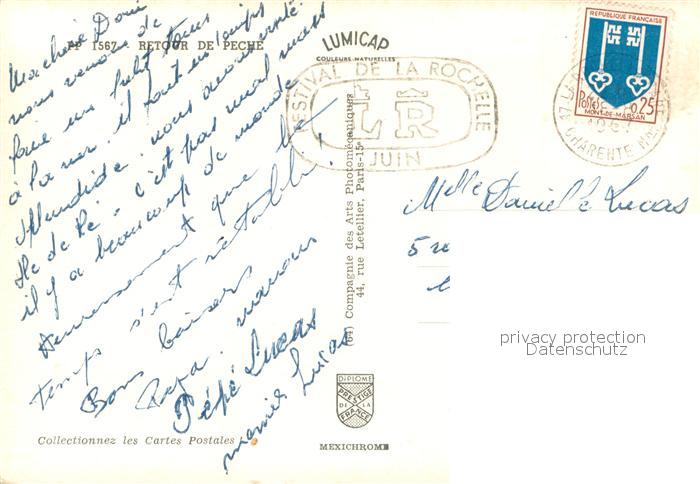 PP 1567 RETOUR DE PECHE
LUMICAP
COULEURS NATURELLES
Ma chérie Dani
nous venons de
faire un petit tour
à la mer, il fait un temps
splendide, nous avons visité
Ile de Ré - c'est pas mal mais
il y a beaucoup de monde
Heureusement que le
temps s'est rétabli!
Bons baisers
Papa, maman
Pépé Lucas
mémé Lucas
FESTIVAL DE LA ROCHELLE
LR
JUIN
REPUBLIQUE FRANÇAISE
Postes
0,25
MONT-DE-MARSAN
17 LA
CHARENTE
Melle Danièle Lucas
5
(64) Compagnie des Arts Photomécaniques
44, rue Letellier, Paris-15e
privacy protection
Datenschutz
DIPLOME
PRESTIGE
DE LA
FRANCE
Collectionnez les Cartes Postales
MEXICHROME